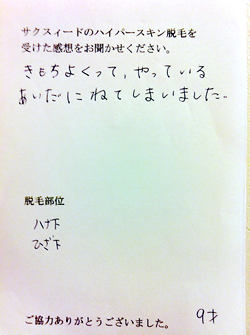 サクスィードのハイパースキン脱毛を
受けた感想をお聞かせください。
きもちよくって、やっている
あいだにねてしまいました。
脱毛部位
ハナ下
ひざ下
ご協力ありがとうございました。
9才